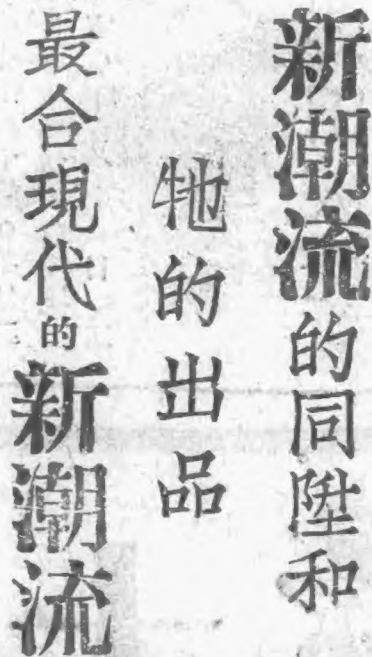 新潮流的同陞和
牠的出品
最合現代的新潮流